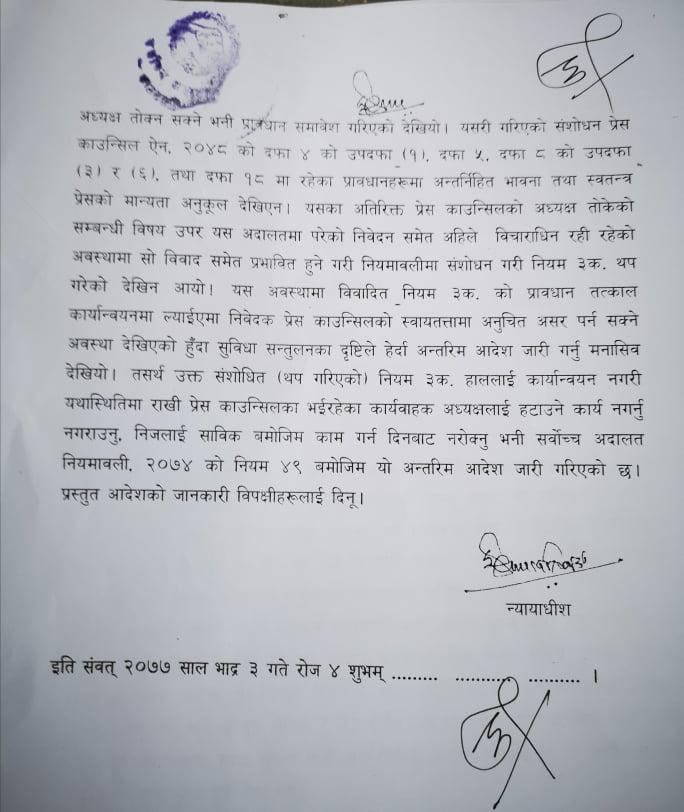 अध्यक्ष तोक्न सक्ने भनी प्रावधान समावेश गरिएको देखियो। यसरी गरिएको संशोधन प्रेस
काउन्सिल ऐन, २०४८ को दफा ४ को उपदफा (१), दफा ५, दफा ८ को उपदफा
(३) र (६), तथा दफा १८ मा रहेका प्रावधानहरूमा अन्तर्निहित भावना तथा स्वतन्त्र
प्रेसको मान्यता अनुकूल देखिएन। यसका अतिरिक्त प्रेस काउन्सिलको अध्यक्ष तोकेको
सम्बन्धी विषय उपर यस अदालतमा परेको निवेदन समेत अहिले विचाराधिन रही रहेको
अवस्थामा सो विवाद समेत प्रभावित हुने गरी नियमावलीमा संशोधन गरी नियम ३क. थप
गरेको देखिन आयो! यस अवस्थामा विवादित नियम ३क. को प्रावधान तत्काल
कार्यान्वयनमा ल्याईएमा निवेदक प्रेस काउन्सिलको स्वायतत्तामा अनुचित असर पर्न सक्ने
अवस्था देखिएको हुँदा सुविधा सन्तुलनका दृष्टिले हेर्दा अन्तरिम आदेश जारी गर्नु मनासिव
देखियो। तसर्थ उक्त संशोधित (थप गरिएको) नियम ३क. हाललाई कार्यान्वयन नगरी
यथास्थितिमा राखी प्रेस काउन्सिलका भईरहेका कार्यवाहक अध्यक्षलाई हटाउने कार्य नगर्नु
नगराउनु, निजलाई साविक बमोजिम काम गर्न दिनबाट नरोक्नु भनी सर्वोच्च अदालत
नियमावली, २०७४ को नियम ४९ बमोजिम यो अन्तरिम आदेश जारी गरिएको छ।
प्रस्तुत आदेशको जानकारी विपक्षीहरूलाई दिनू।
न्यायाधीश
इति संवत् २०७७ साल भाद्र ३ गते रोज ४ शुभम् ......... ......... ......... ।